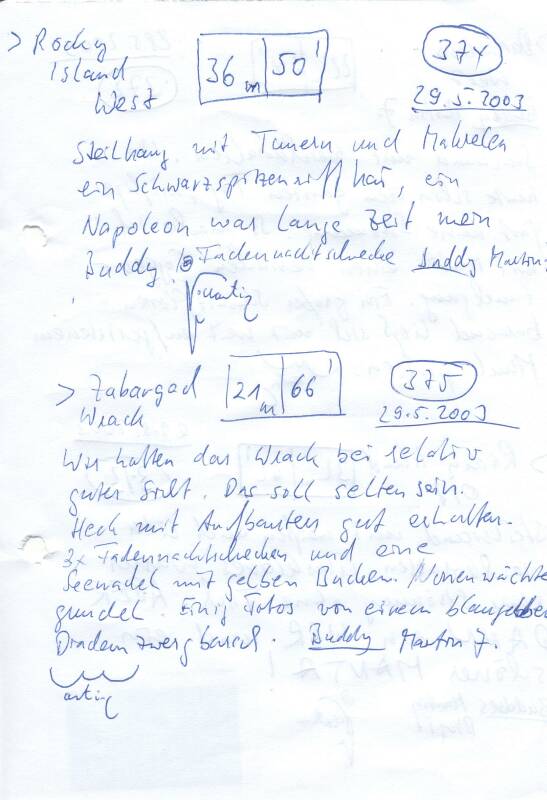 > Rocky
Island
West
36 m 50'
374
29.5.2003
Steilhang mit Tunern und Makrelen
ein Schwarzspitzenriffhai, ein
Napoleon war lange Zeit mein
Buddy. 1 Fadennacktschnecke Buddy Martin
artig
> Zabargad
Wrack
21 m 66'
375
29.5.2003
Wir hatten das Wrack bei relativ
guter Sicht. Das soll selten sein.
Heck mit Aufbauten gut erhalten.
3x Fadennacktschnecken und eine
Seenadel mit gelben Backen. Nonenwächter
grundel Einig Fotos von einem blaugelben
Diadem zwergbarsch. Buddy Martin J.
artig